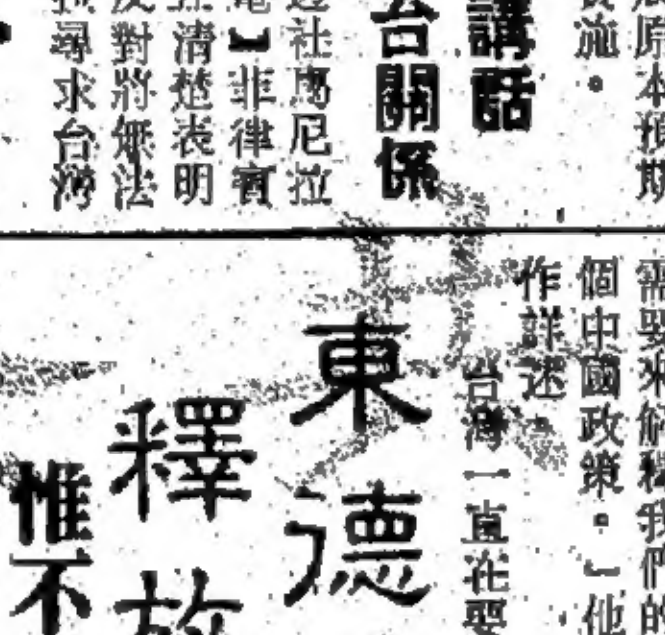 原本預期
施。
講話
台關係
社馬尼拉
電】菲律賓
清楚表明
反對將無法
尋求台灣
需要來解釋我們的
個中國政策。」他
作詳述。
台灣一直在
東德
釋放
惟不